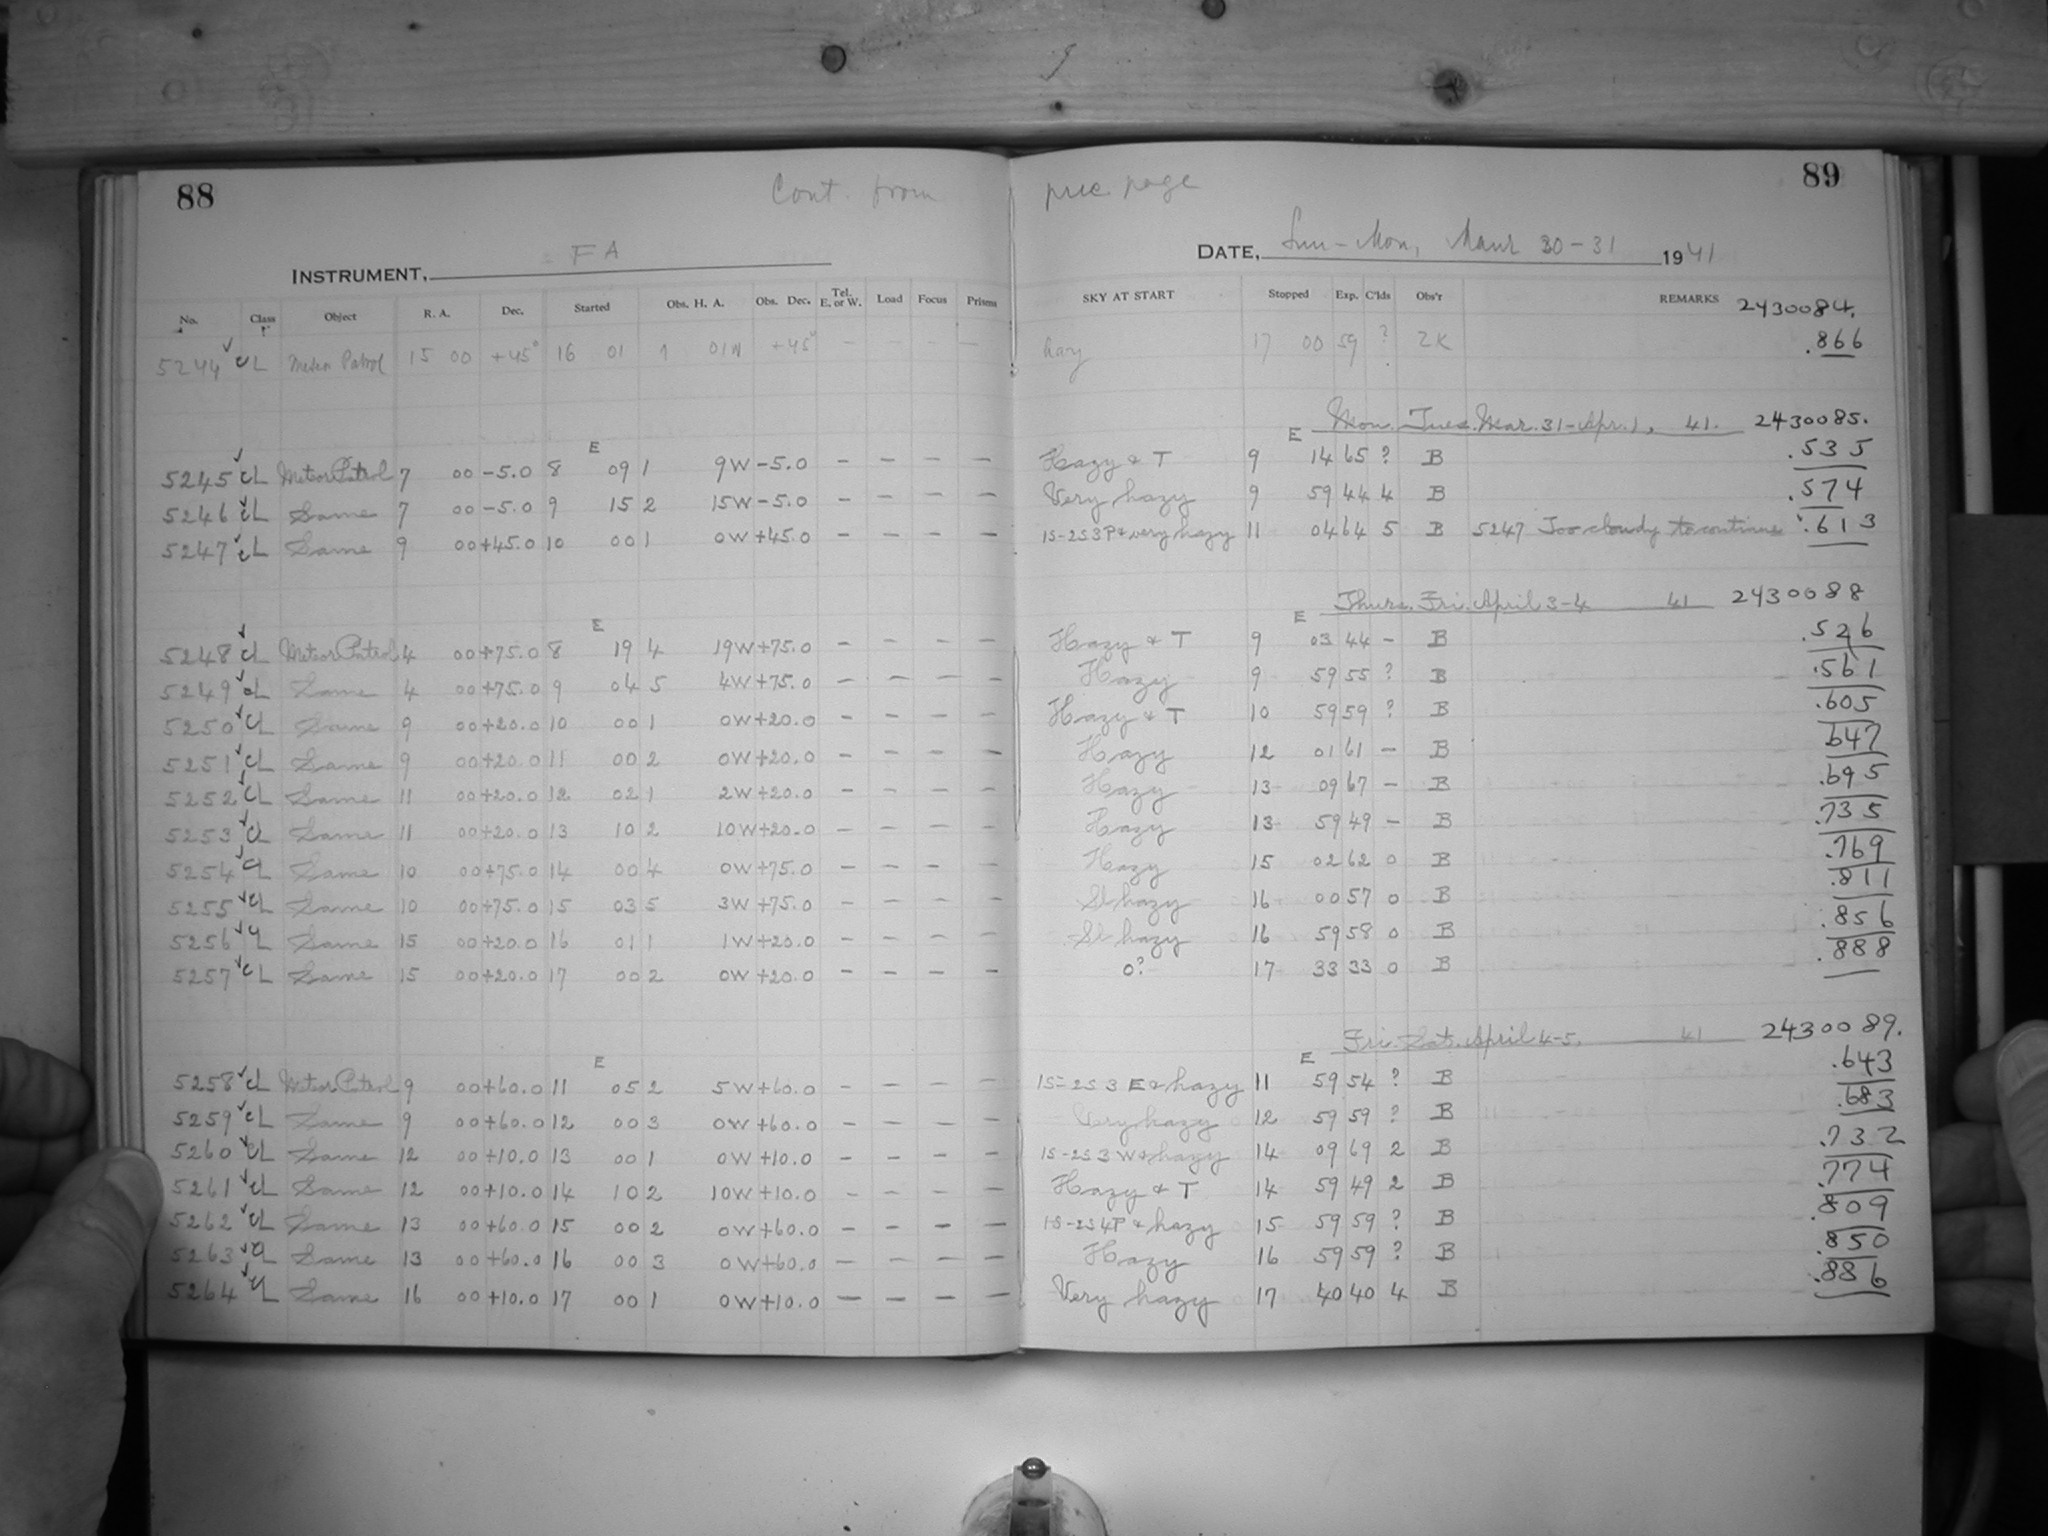 88
Cont. from
prec page
89
INSTRUMENT, FA
DATE, Sun-Mon, March 30-31 1941
No. Class Object R. A. Dec. Started Obs. H. A. Obs. Dec. Tel. E. or W. Load Focus Prisms SKY AT START Stopped Exp. C'lds Obs'r REMARKS 2430084.
5244 ✓ CL Meteor Patrol 15 00 +45° 16 01 1 01W +45° - - - - hazy 17 00 59 ? ZK .866
E Mon. Tues. Mar. 31-Apr. 1, 41. 2430085.
E
5245 ✓ CL Meteor Patrol 7 00 -5.0 8 09 1 9W -5.0 - - - - Hazy & T 9 14 65 ? B .535
5246 ✓ CL Same 7 00 -5.0 9 15 2 15W -5.0 - - - - Very hazy 9 59 44 4 B .574
5247 ✓ CL Same 9 00 +45.0 10 00 1 0W +45.0 - - - - 1S-2S3P & very hazy 11 04 64 5 B 5247 Too cloudy to continue .613
E Thurs. Fri. April 3-4 41 2430088
E
5248 ✓ CL Meteor Patrol 4 00 +75.0 8 19 4 19W +75.0 - - - - Hazy & T 9 03 44 - B .526
5249 ✓ CL Same 4 00 +75.0 9 04 5 4W +75.0 - - - - Hazy 9 59 55 ? B .561
5250 ✓ CL Same 9 00 +20.0 10 00 1 0W +20.0 - - - - Hazy & T 10 59 59 ? B .605
5251 ✓ CL Same 9 00 +20.0 11 00 2 0W +20.0 - - - - Hazy 12 01 61 - B .647
5252 ✓ CL Same 11 00 +20.0 12 02 1 2W +20.0 - - - - Hazy 13 09 67 - B .695
5253 ✓ CL Same 11 00 +20.0 13 10 2 10W +20.0 - - - - Hazy 13 59 49 - B .735
5254 ✓ CL Same 10 00 +75.0 14 00 4 0W +75.0 - - - - Hazy 15 02 62 0 B .769
5255 ✓ CL Same 10 00 +75.0 15 03 5 3W +75.0 - - - - Sl hazy 16 00 57 0 B .811
5256 ✓ CL Same 15 00 +20.0 16 01 1 1W +20.0 - - - - Sl hazy 16 59 58 0 B .856
5257 ✓ CL Same 15 00 +20.0 17 00 2 0W +20.0 - - - - 0? 17 33 33 0 B .888
E Fri. Sat. April 4-5. 41 2430089.
E
5258 ✓ CL Meteor Patrol 9 00 +60.0 11 05 2 5W +60.0 - - - - 1S-2S 3 E & hazy 11 59 54 ? B .643
5259 ✓ CL Same 9 00 +60.0 12 00 3 0W +60.0 - - - - Very hazy 12 59 59 ? B .683
5260 ✓ CL Same 12 00 +10.0 13 00 1 0W +10.0 - - - - 1S-2S 3 W & hazy 14 09 69 2 B .732
5261 ✓ CL Same 12 00 +10.0 14 10 2 10W +10.0 - - - - Hazy & T 14 59 49 2 B .774
5262 ✓ CL Same 13 00 +60.0 15 00 2 0W +60.0 - - - - 1S-2S4P & hazy 15 59 59 ? B .809
5263 ✓ CL Same 13 00 +60.0 16 00 3 0W +60.0 - - - - Hazy 16 59 59 ? B .850
5264 ✓ CL Same 16 00 +10.0 17 00 1 0W +10.0 - - - - Very hazy 17 40 40 4 B .886